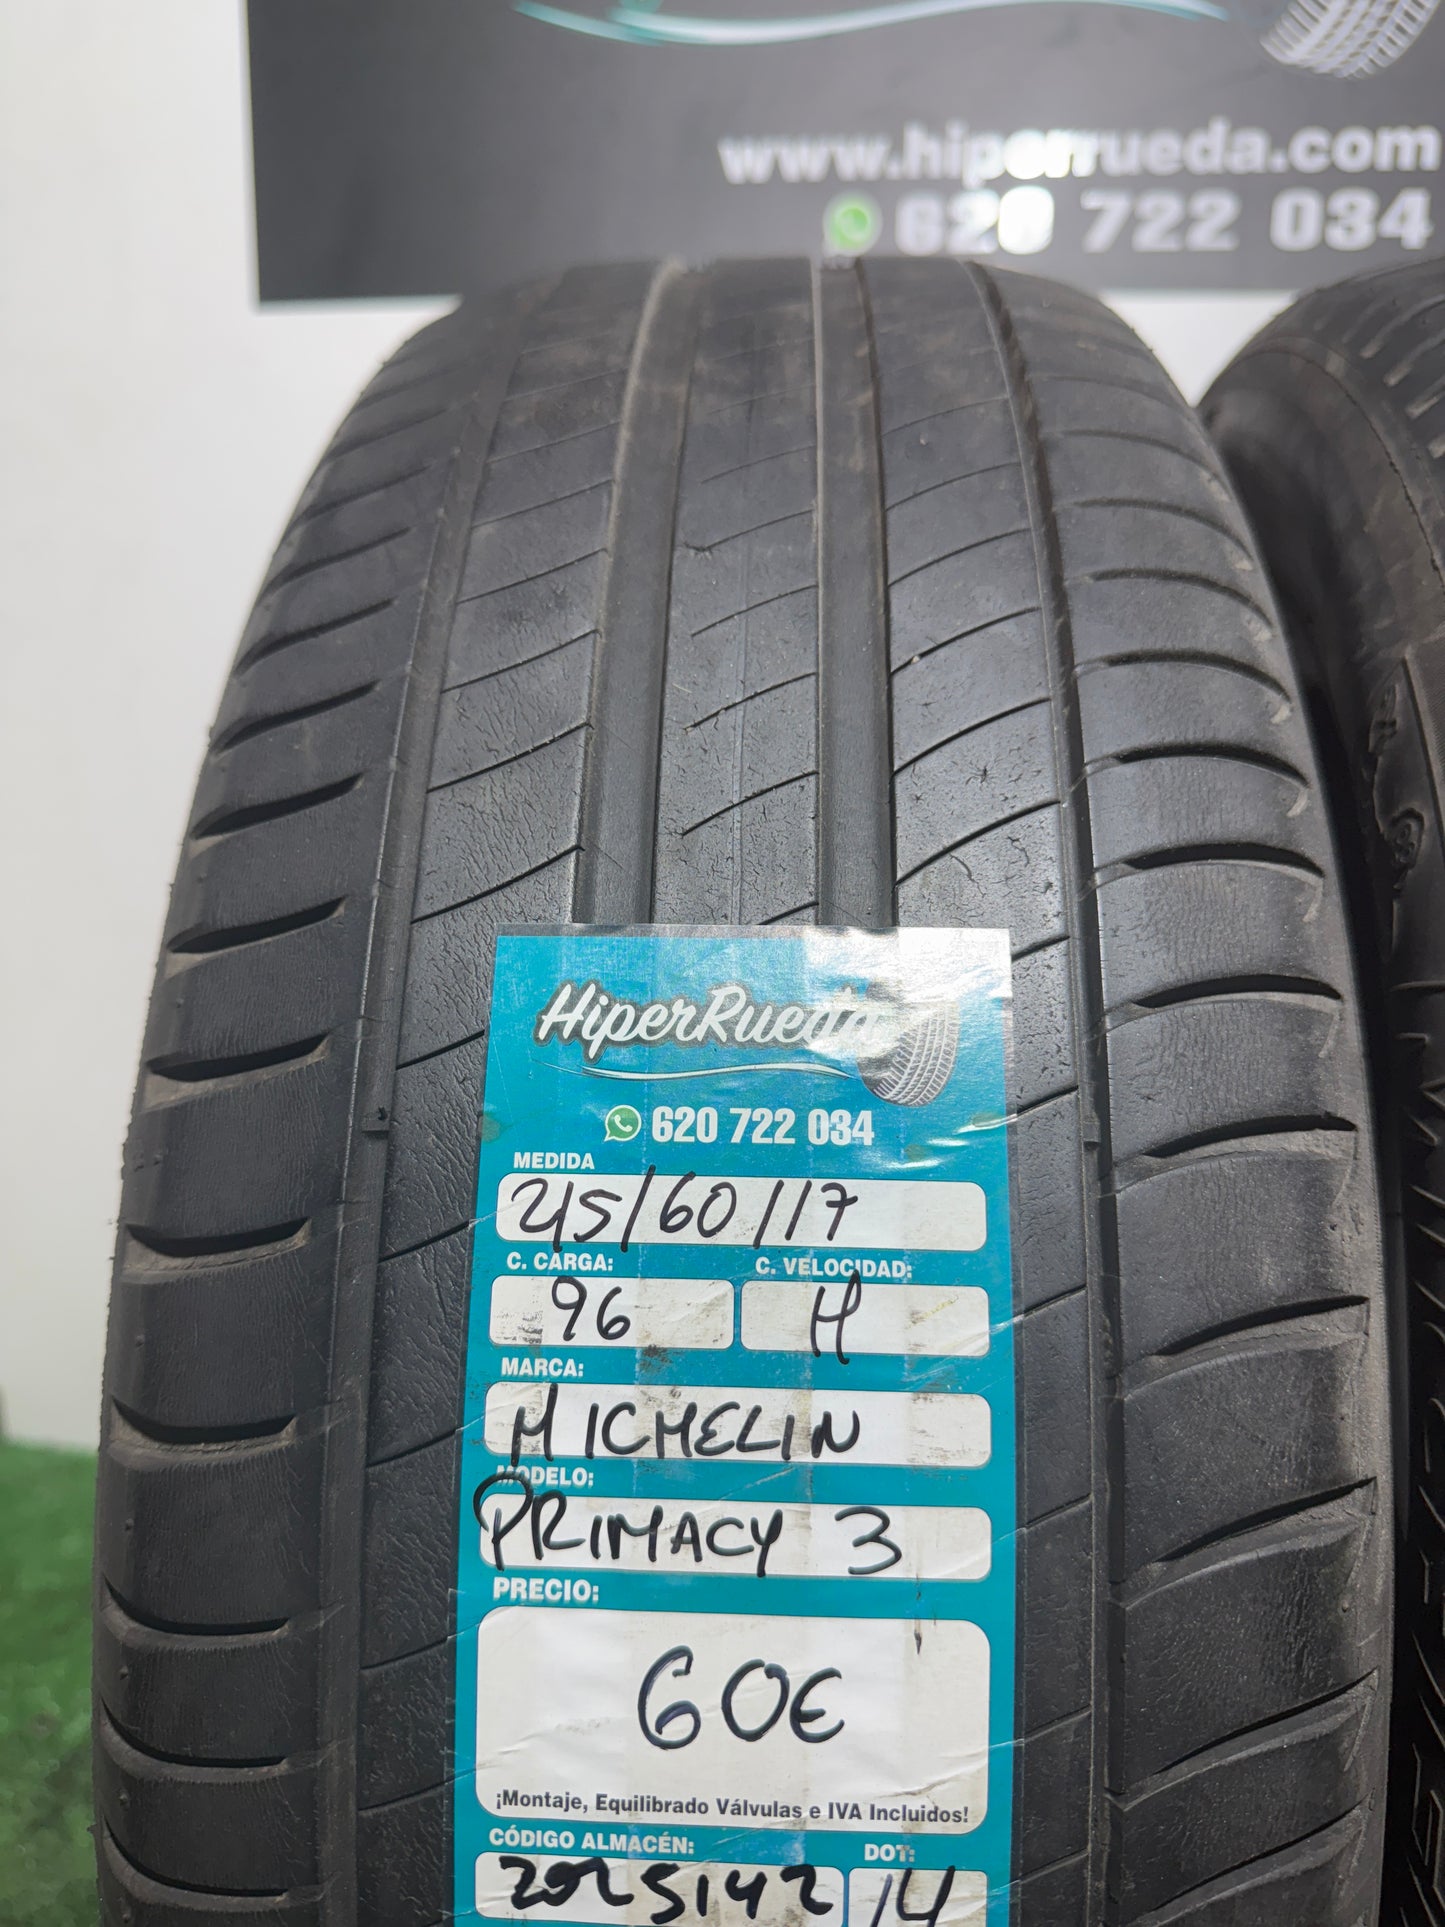 www.hiperrueda.com
620 722 034
HiperRueda
620 722 034
MEDIDA
215/60/17
C. CARGA: C. VELOCIDAD:
96 H
MARCA:
MICHELIN
MODELO:
PRIMACY 3
PRECIO:
60€
¡Montaje, Equilibrado Válvulas e IVA Incluidos!
CÓDIGO ALMACÉN: DOT:
2025142 14